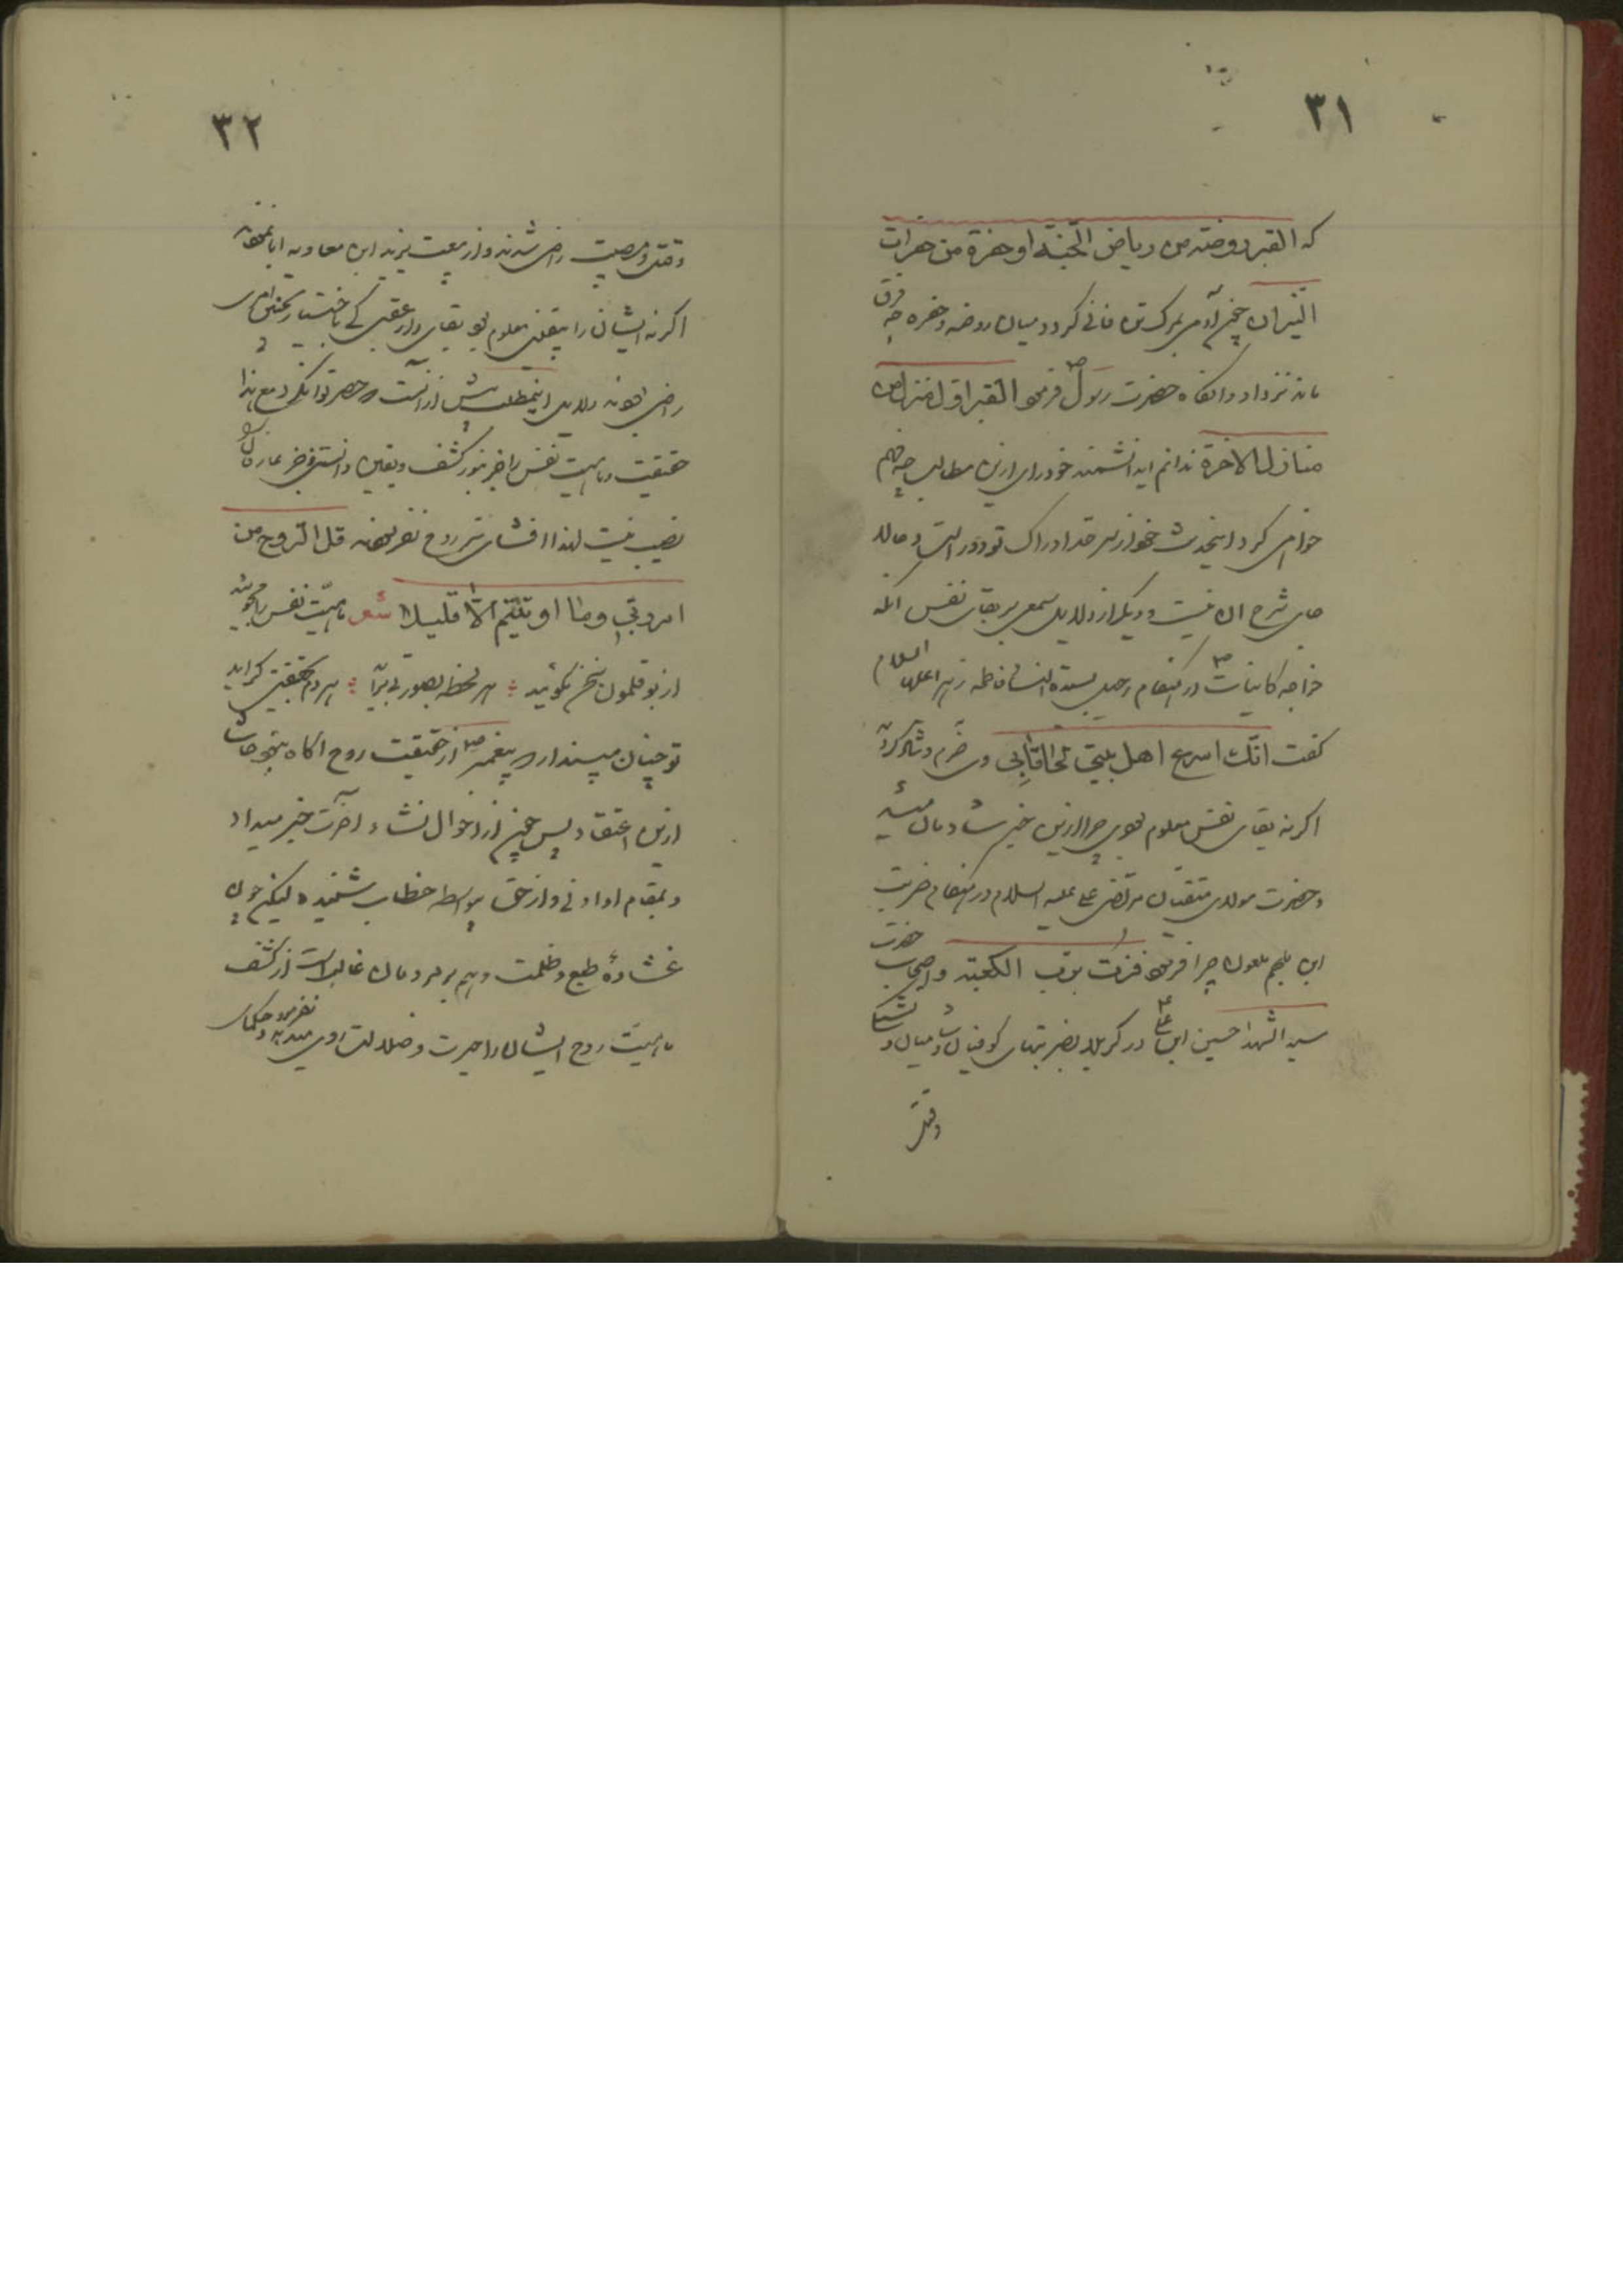 ۳۱
که القبر روضة من ریاض الجنة او حفرة من حفرات
النیران چون آدمی بمرک تن فانی کردد میان روضه و حفره چه فرق
ماند نزد او و انکاه حضرت رسول ص فرمود القبر اول منزل من
منازل الاخرة ندانم این دانشمند خودرای ازین مطالب چه فهم
خواهی کرد اینحدیث خود از سرحد ادراک تو دور است و حالا
جای شرح ان نیست و دیکر از دلایل سمعی بر بقای نفس انکه
خواجه کاینات ص در هنکام رحیل بسیدة النسا فاطمه زهرا علیها السلام
کفت انک اسرع اهل بیتی لحاقا بی وی خرم و شاد کردید
اکر نه بقای نفس معلوم بودی چرا ازین خبر شادمان میشد
و حضرت مولای متقیان مرتضی علی علیه السلام در هنکام ضربت
ابن ملجم ملعون چرا فرمود فزت برب الکعبة و اصحاب حضرت
سید الشهدا حسین ابن علی ع در کربلا بضربتهای کوفیان و شامیان و
وقتل
۳۲
وقتل و مصیبت راضی شدند و از بیعت یزید ابن معاویه ابا نمودند
اکر نه ایشان را بیقین معلوم بود بقای دار عقبی کی باختیار بچنین امری
راضی بودند دلایل اینمطلب بیش از آنست که حصر توان کرد مع هذا
حقیقت و ماهیت نفس را جز بنور کشف و یقین دانستن جز عارفان را
نصیب نیست لهذا افشای سر روح نفرمودند قل الروح من
امر ربی وما اوتیتم الا قلیلا شعر ماهیت نفس را مجوئید
از بوقلمون سخن نکوئید هر لحظه بصورتی برآید هر دم بحقیقتی کراید
تو چنان مپندار که پیغمبر ص از حقیقت روح اکاه نبود حاشا
ازین اعتقاد پس چون از احوال نشاء اخرت خبر میداد
و بمقام او ادنی و از حق بیواسطه خطاب شنیده لیکن چون
غشاوهٔ طبع و ظلمت وهم بر مردمان غالب است از کشف
ماهیت روح ایشان را حیرت و ضلالت روی میداد نفرمود و حکمای